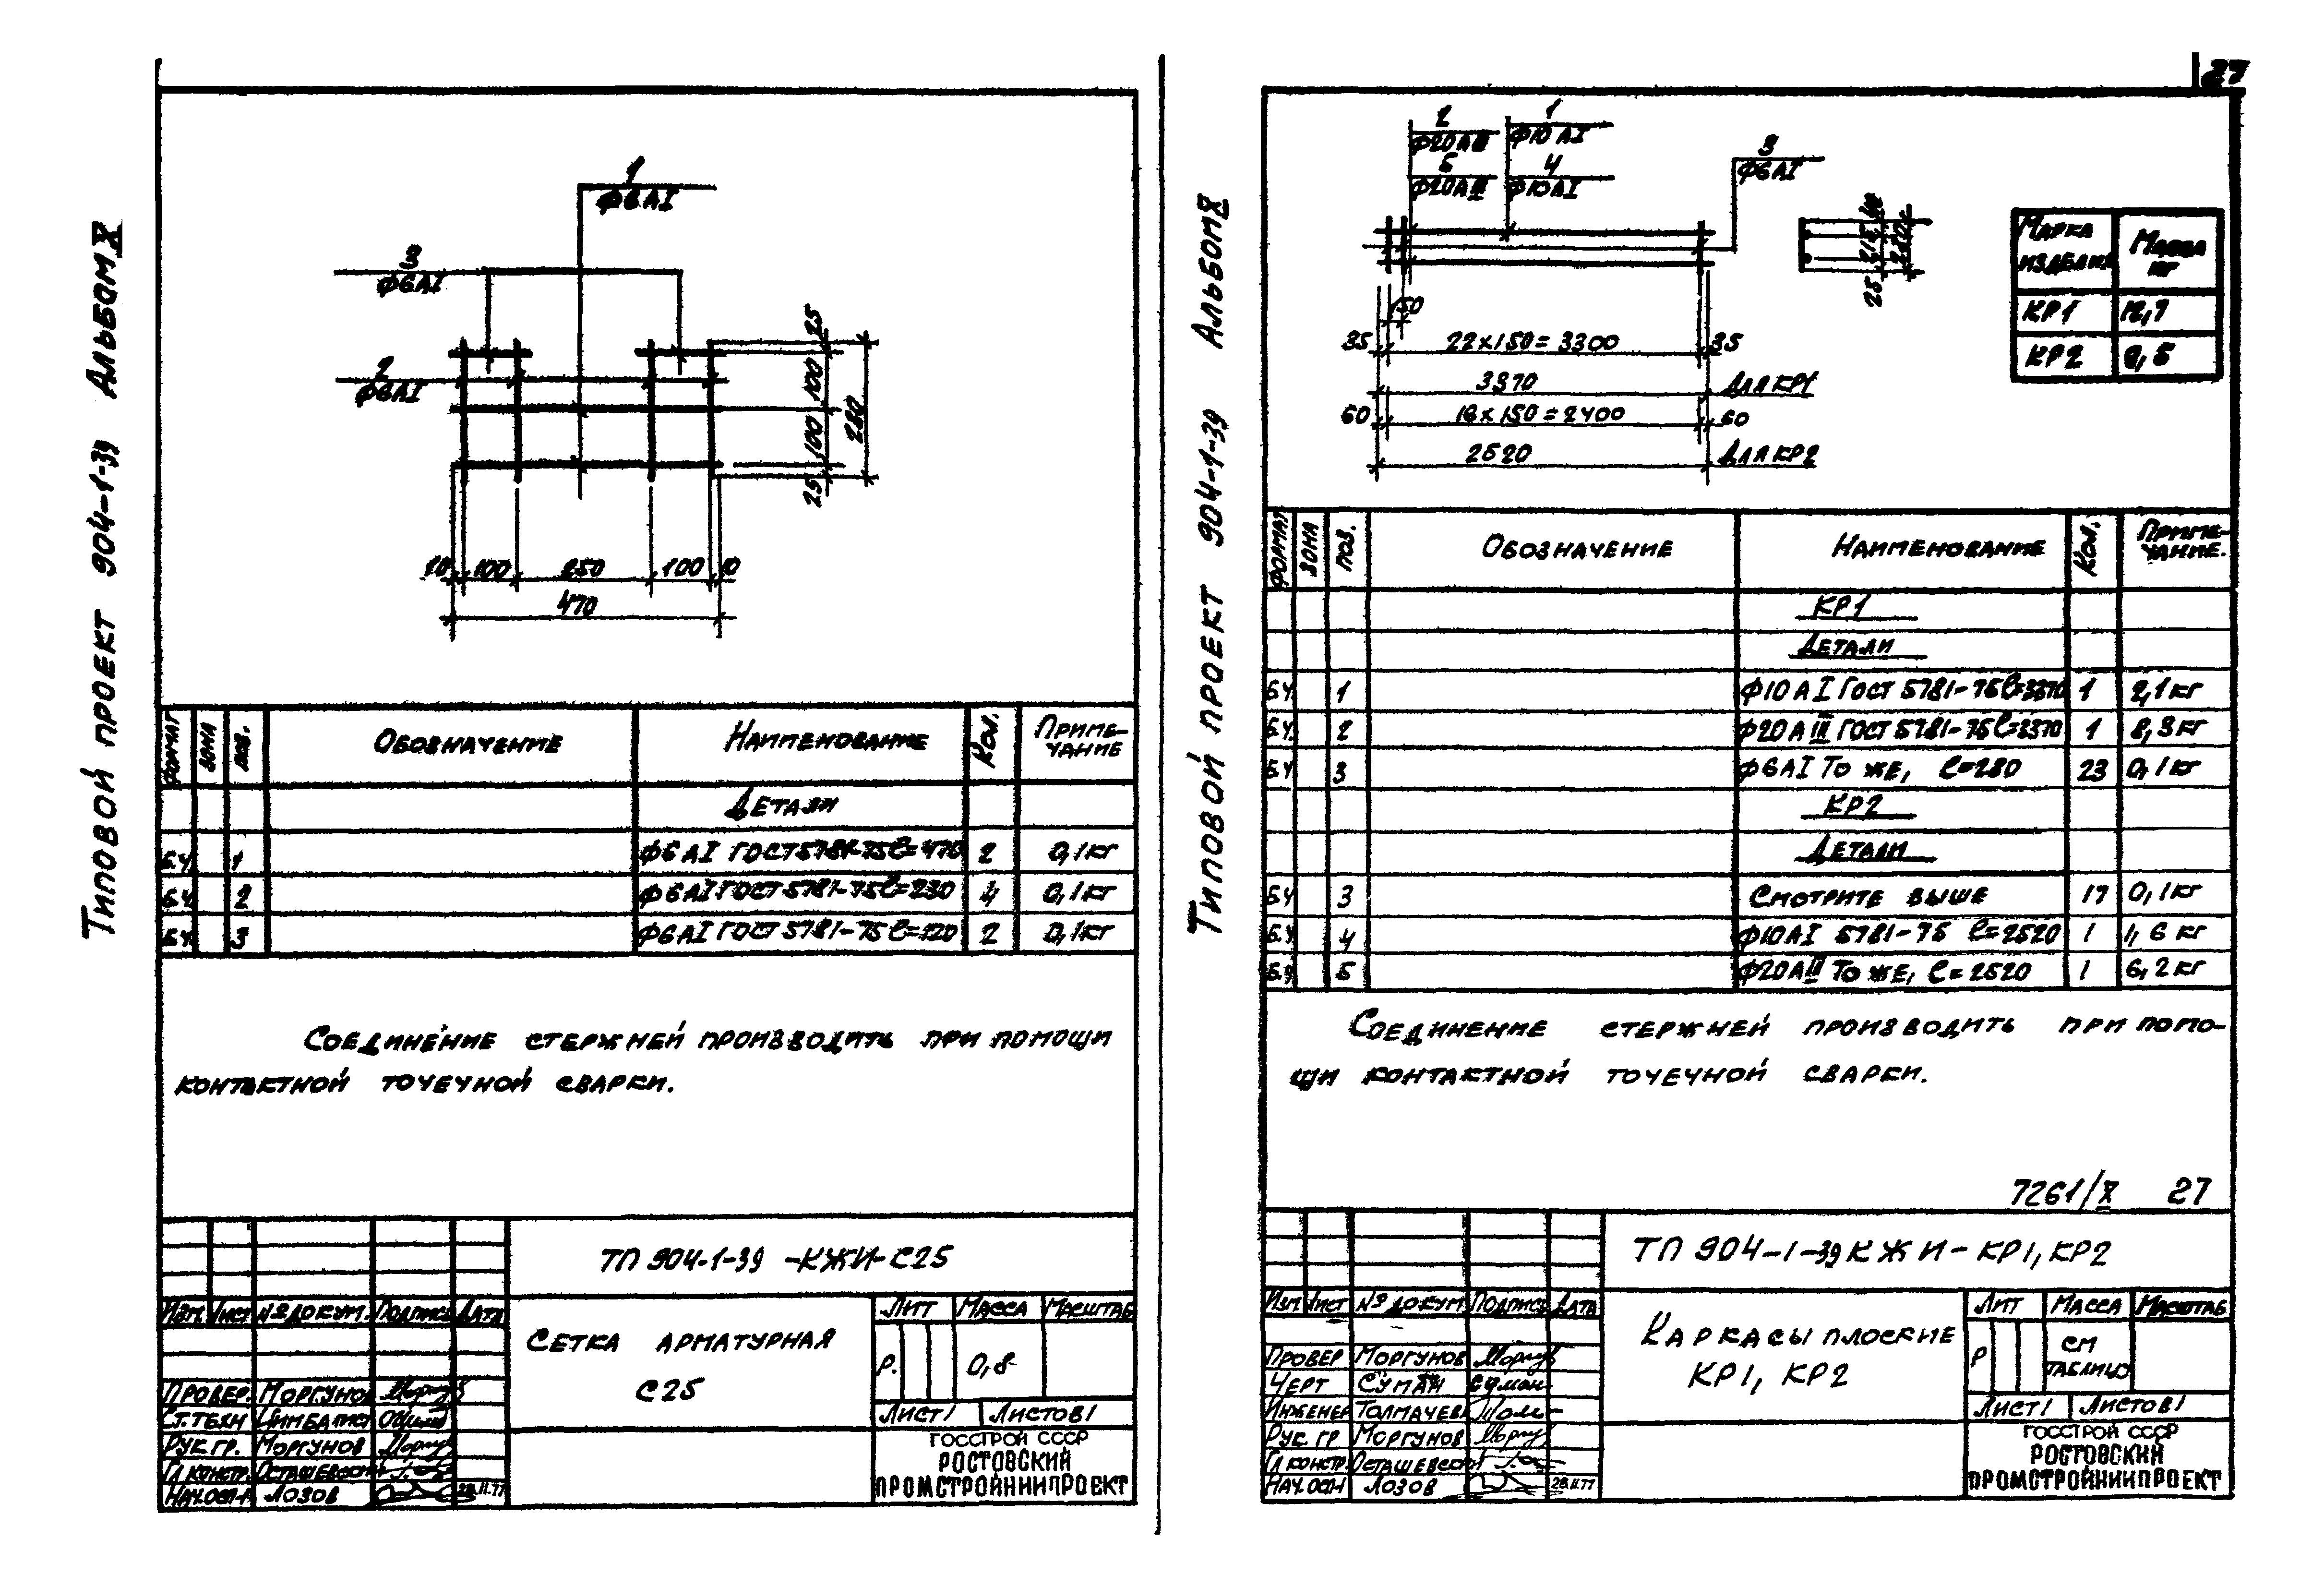 27
Типовой проект 904-1-39 Альбом X
1
Ф6АI
3
Ф6АI
2
Ф6АI
25
100
100
25
250
10 100 250 100 10
470
Формат Зона Поз. Обозначение Наименование Кол. Примечание
Детали
Б.Ч. 1 Ф6АI ГОСТ 5781-75 ℓ=470 2 0,1кг
Б.Ч. 2 Ф6АI ГОСТ 5781-75 ℓ=230 4 0,1кг
Б.Ч. 3 Ф6АI ГОСТ 5781-75 ℓ=120 2 0,1кг
Соединение стержней производить при помощи
контактной точечной сварки.
ТП 904-1-39 -КЖИ-С25
Изм. Лист № докум. Подпись Дата
Сетка арматурная
С25
Лит Масса Масштаб
Р. 0,8
Лист 1 Листов 1
Провер. Моргунов
Ст. техн
Рук. гр. Моргунов
Гл. констр. Осташевский
Нач. ост-1 Лозов 28.II.77
ГОССТРОЙ СССР
РОСТОВСКИЙ
ПРОМСТРОЙНИИПРОЕКТ
Типовой проект 904-1-39 Альбом X
2 1
Ф20АIII Ф10АI
5 4
Ф20АIII Ф10АI
3
Ф6АI
215
25
150
35 22×150=3300 35
3370 Для КР1
60 16×150=2400 60
2520 Для КР2
Марка изделия Масса кг
КР1 12,7
КР2 9,5
Формат Зона Поз. Обозначение Наименование Кол. Примечание.
КР1
Детали
Б.Ч. 1 Ф10АI ГОСТ 5781-75 ℓ=3370 1 2,1кг
Б.Ч. 2 Ф20АIII ГОСТ 5781-75 ℓ=3370 1 8,3кг
Б.Ч. 3 Ф6АI То же, ℓ=280 23 0,1кг
КР2
Детали
Б.Ч. 3 Смотрите выше 17 0,1кг
Б.Ч. 4 Ф10АI 5781-75 ℓ=2520 1 1,6кг
Б.Ч. 5 Ф20АIII То же, ℓ=2520 1 6,2кг
Соединение стержней производить при помо-
щи контактной точечной сварки.
7261/X 27
ТП 904-1-39 КЖИ-КР1, КР2
Изм. Лист № докум. Подпись Дата
Каркасы плоские
КР1, КР2
Лит Масса Масштаб
Р см таблицу
Лист 1 Листов 1
Провер Моргунов
Черт Суман
Инженер Толмачева
Рук. гр Моргунов
Гл констр. Осташевский
Нач. ост-1 Лозов 28.II.77
ГОССТРОЙ СССР
РОСТОВСКИЙ
ПРОМСТРОЙНИИПРОЕКТ